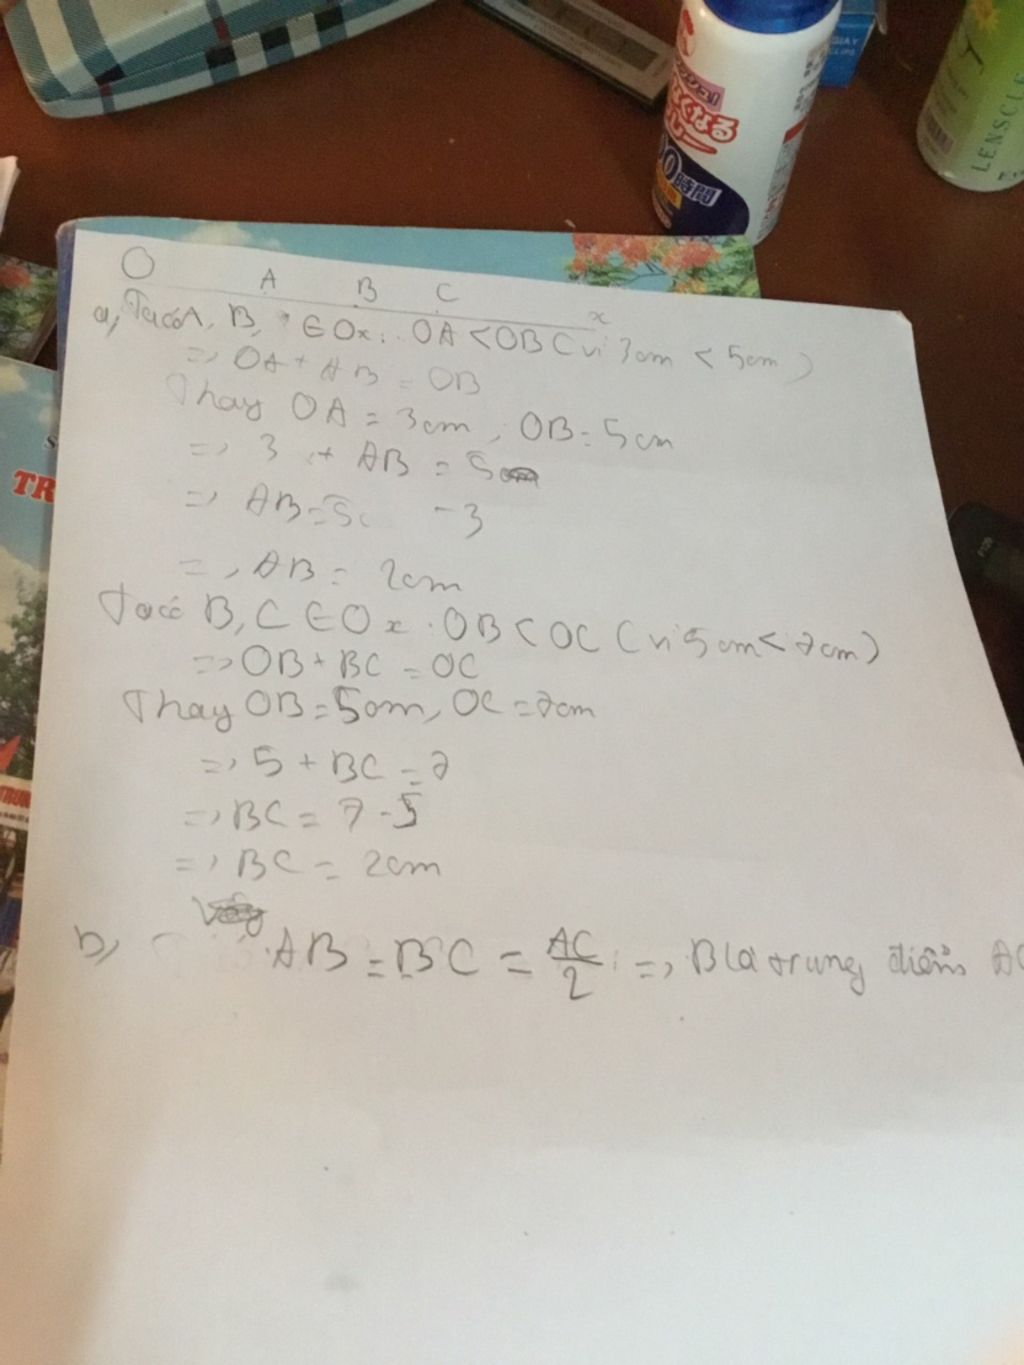 GIAY
LENSCLE
時間
O A B C x
a, Ta có A, B, ∈ Ox. OA < OB (vì 3cm < 5cm)
=> OA + AB = OB
Thay OA = 3cm, OB = 5cm
=> 3 + AB = 5
=> AB = 5 - 3
=> AB = 2cm
Ta có B, C ∈ Ox. OB < OC (vì 5cm < 7cm)
=> OB + BC = OC
Thay OB = 5cm, OC = 7cm
=> 5 + BC = 7
=> BC = 7 - 5
=> BC = 2cm
b, AB = BC = AC/2 => B là trung điểm AC
TR
TRUN